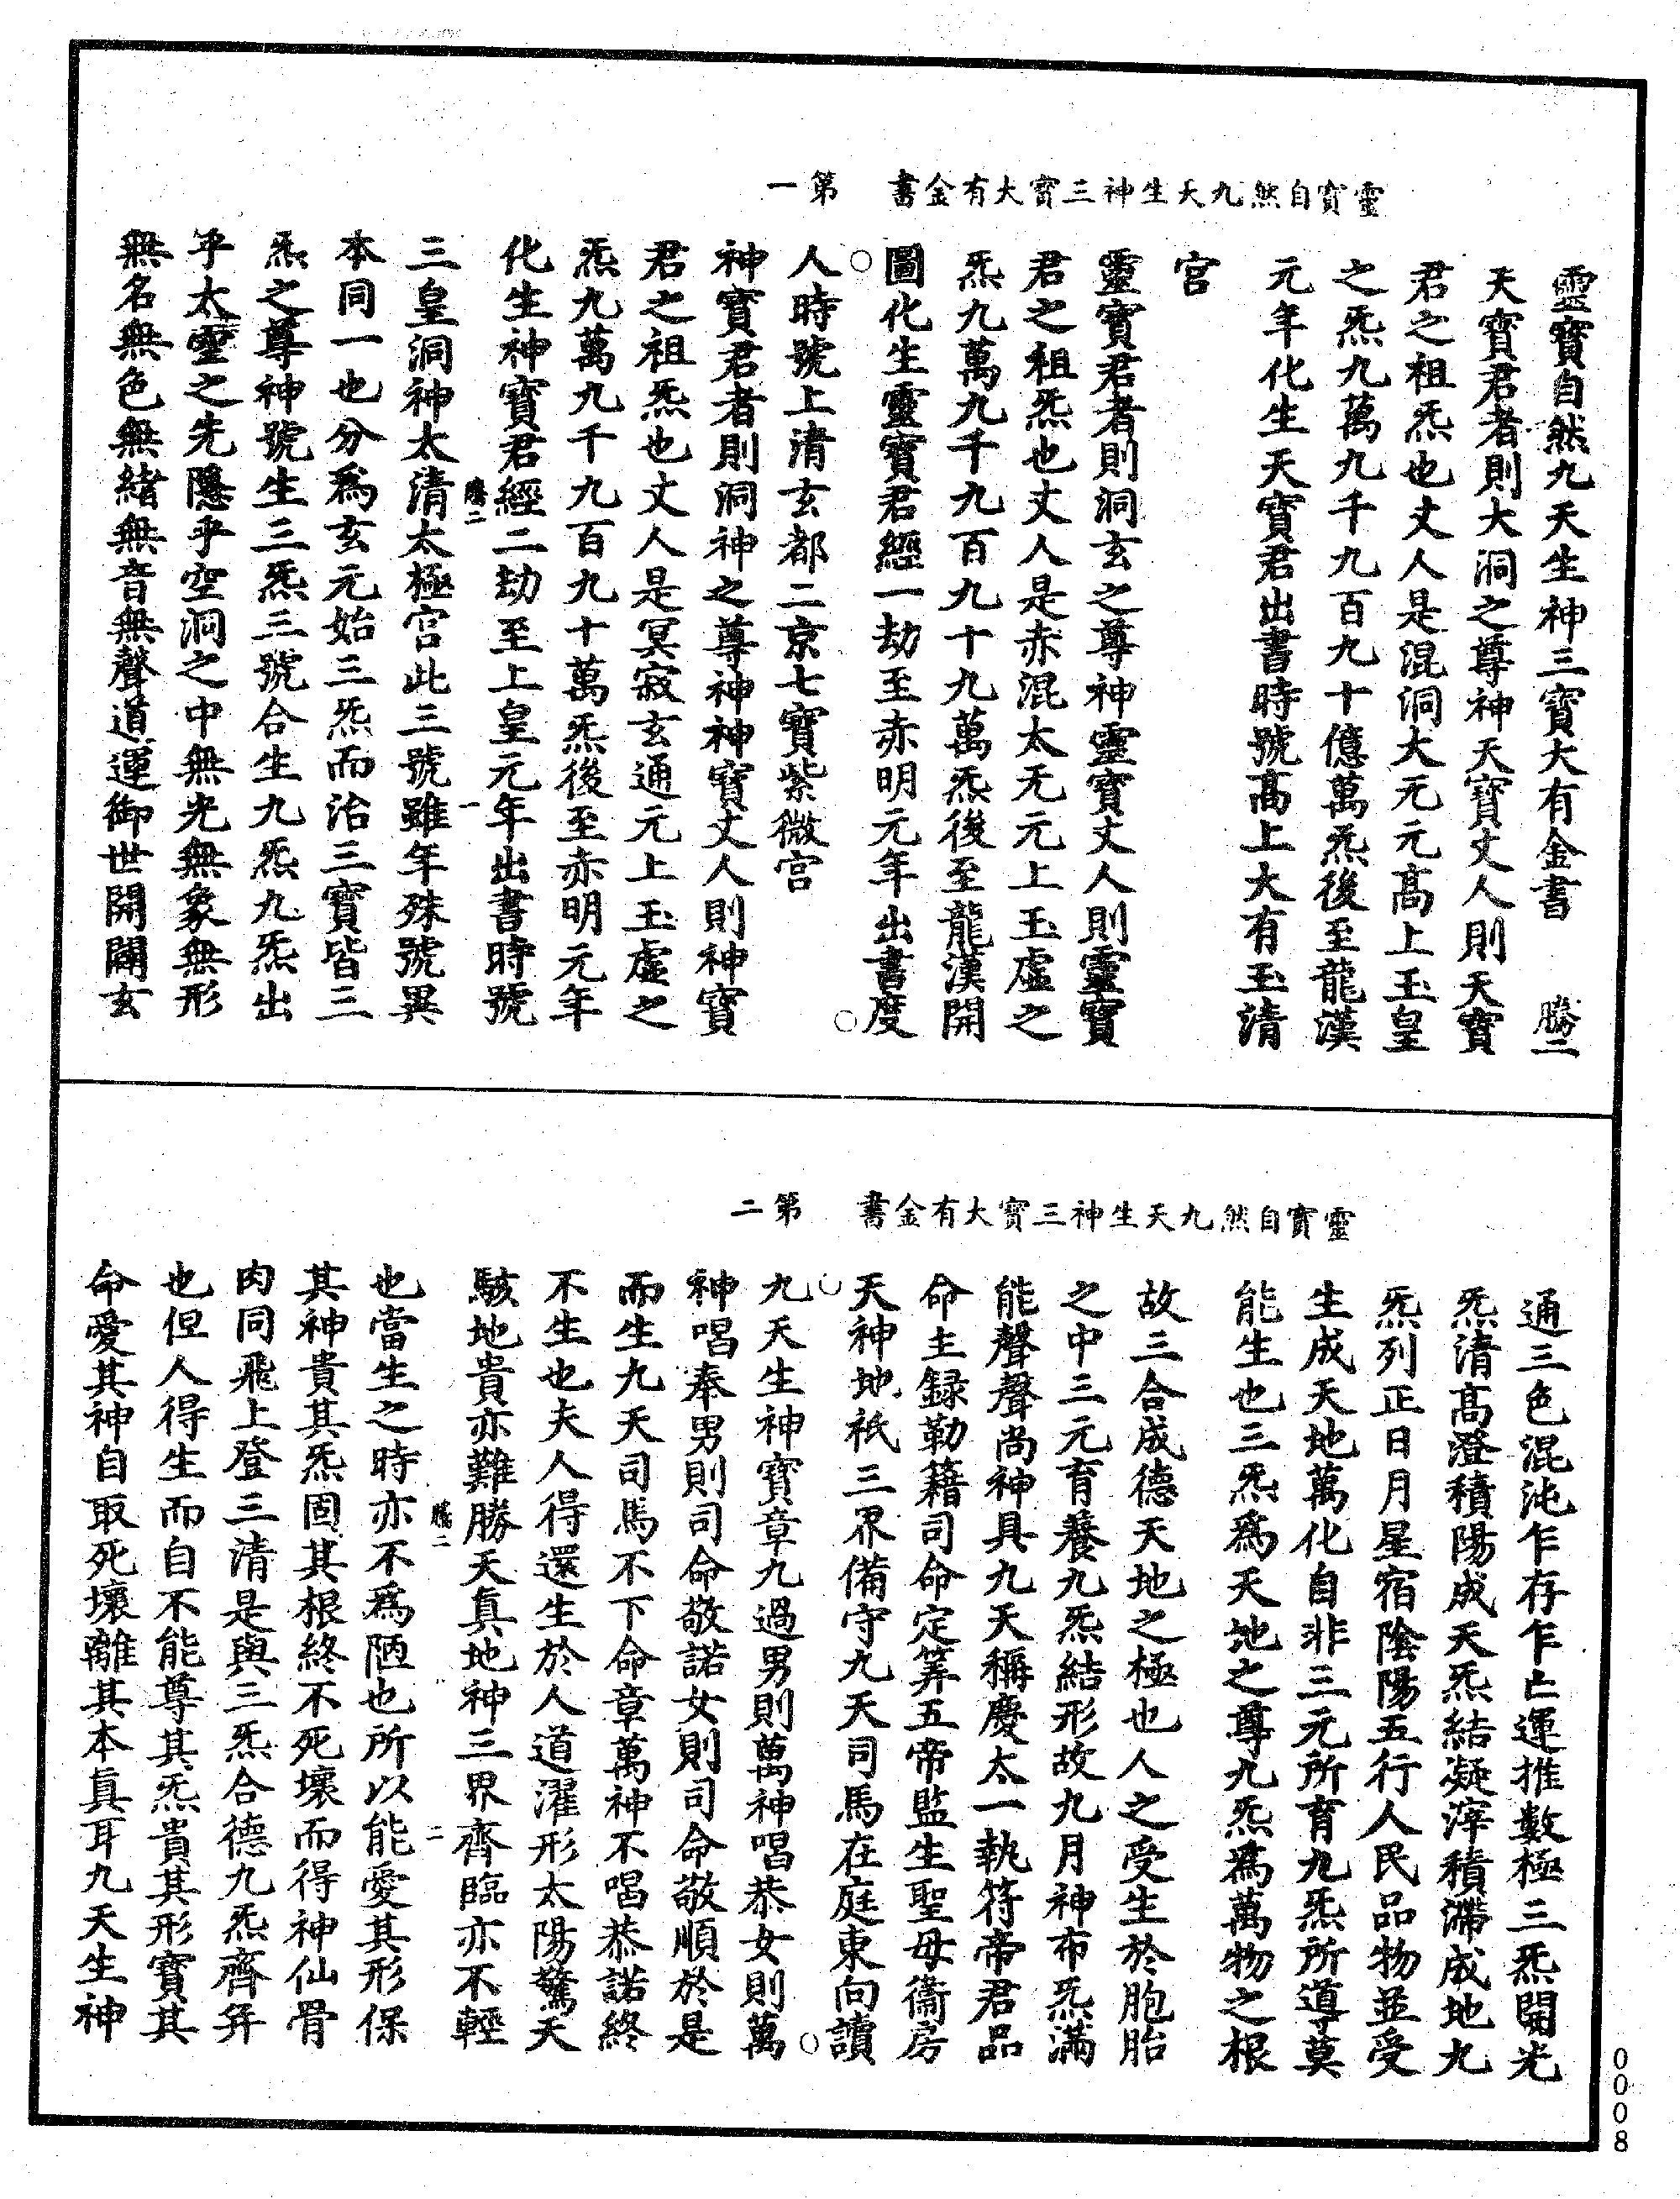 靈寳自然九天生神三寳大有金書　第一
靈寳自然九天生神三寳大有金書　勝二
天寳君者則大洞之尊神天寳丈人則天寳
君之祖炁也丈人是混洞大元元髙上玉皇
之炁九萬九千九百九十億萬炁後至龍漢
元年化生天寳君出書時號髙上大有玉清
宫
靈寳君者則洞玄之尊神靈寳丈人則靈寳
君之祖炁也丈人是赤混太无元上玉虛之
炁九萬九千九百九十九萬炁後至龍漢開
圖化生靈寳君經一劫至赤明元年出書度
人時號上清玄都二京七寳紫微宫
神寳君者則洞神之尊神神寳丈人則神寳
君之祖炁也丈人是冥寂玄通元上玉虛之
炁九萬九千九百九十萬炁後至赤明元年
化生神寳君經二劫至上皇元年出書時號
勝二　一
三皇洞神太清太極宫此三號雖年殊號異
本同一也分爲玄元始三炁而治三寳皆三
炁之尊神號生三炁三號合生九炁九炁出
乎太靈之先隱乎空洞之中無光無象無形
無名無色無緒無音無聲道運御世開闢玄
靈寳自然九天生神三寳大有金書　第二
通三色混沌乍存乍亡運推數極三炁開光
炁清髙澄積陽成天炁結凝滓積滯成地九
炁列正日月星宿陰陽五行人民品物並受
生成天地萬化自非三元所育九炁所導莫
能生也三炁爲天地之尊九炁爲萬物之根
故三合成德天地之極也人之受生於胞胎
之中三元育養九炁結形故九月神布炁滿
能聲聲尚神具九天稱慶太一執符帝君品
命主録勒籍司命定筭五帝監生聖母衞房
天神地祇三界備守九天司馬在庭東向讀
九天生神寳章九過男則萬神唱恭女則萬
神唱奉男則司命敬諾女則司命敬順於是
而生九天司馬不下命章萬神不唱恭諾終
不生也夫人得還生於人道濯形太陽驚天
駭地貴亦難勝天真地神三界齊臨亦不輕
勝二　二
也當生之時亦不爲陋也所以能愛其形保
其神貴其炁固其根終不死壞而得神仙骨
肉同飛上登三清是與三炁合德九炁齊并
也但人得生而自不能尊其炁貴其形寳其
命愛其神自取死壞離其本眞耳九天生神
0008